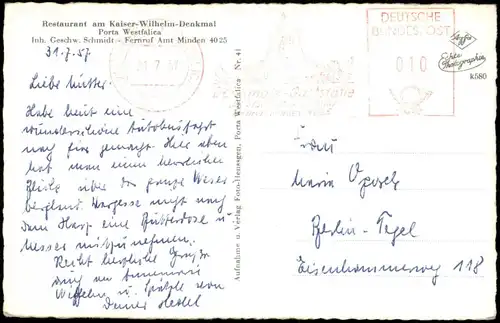 Restaurant am Kaiser-Wilhelm-Denkmal
Porta Westfalica
Inh. Geschw. Schmidt – Fernruf Amt Minden 4025
31.7.57
Liebe Mutter.
Habe heut eine
wunderschöne Autobusfahrt
nach hier gemacht. Hier oben
hat man einen herrlichen
Blick über das ganze Weser
bergland. Vergesse nicht nach
dem Harz eine Butterdose u.
Messer mitzunehmen.
Recht herzliche Grüße
auch an
u. von
Deiner
Aufnahme u. Verlag Foto-Heusegen, Porta Westfalica Nr. 41
7.57
DEUTSCHE
BUNDESPOST
010
Agfa
Echte
Photographie
k580
Frau
Maria
Berlin-Tegel
Eisenhammerweg 118